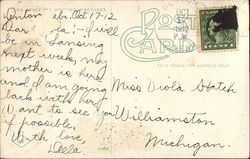 Oct 17-12
Dear
I will
be in Lansing
next week, my
mother is here
and I am going
back with her
Want to see you
if possible,
With love,
Della
POST
CARD
THIS SPACE FOR ADDRESS ONLY
Miss Viola Hatch
Williamston
Michigan.